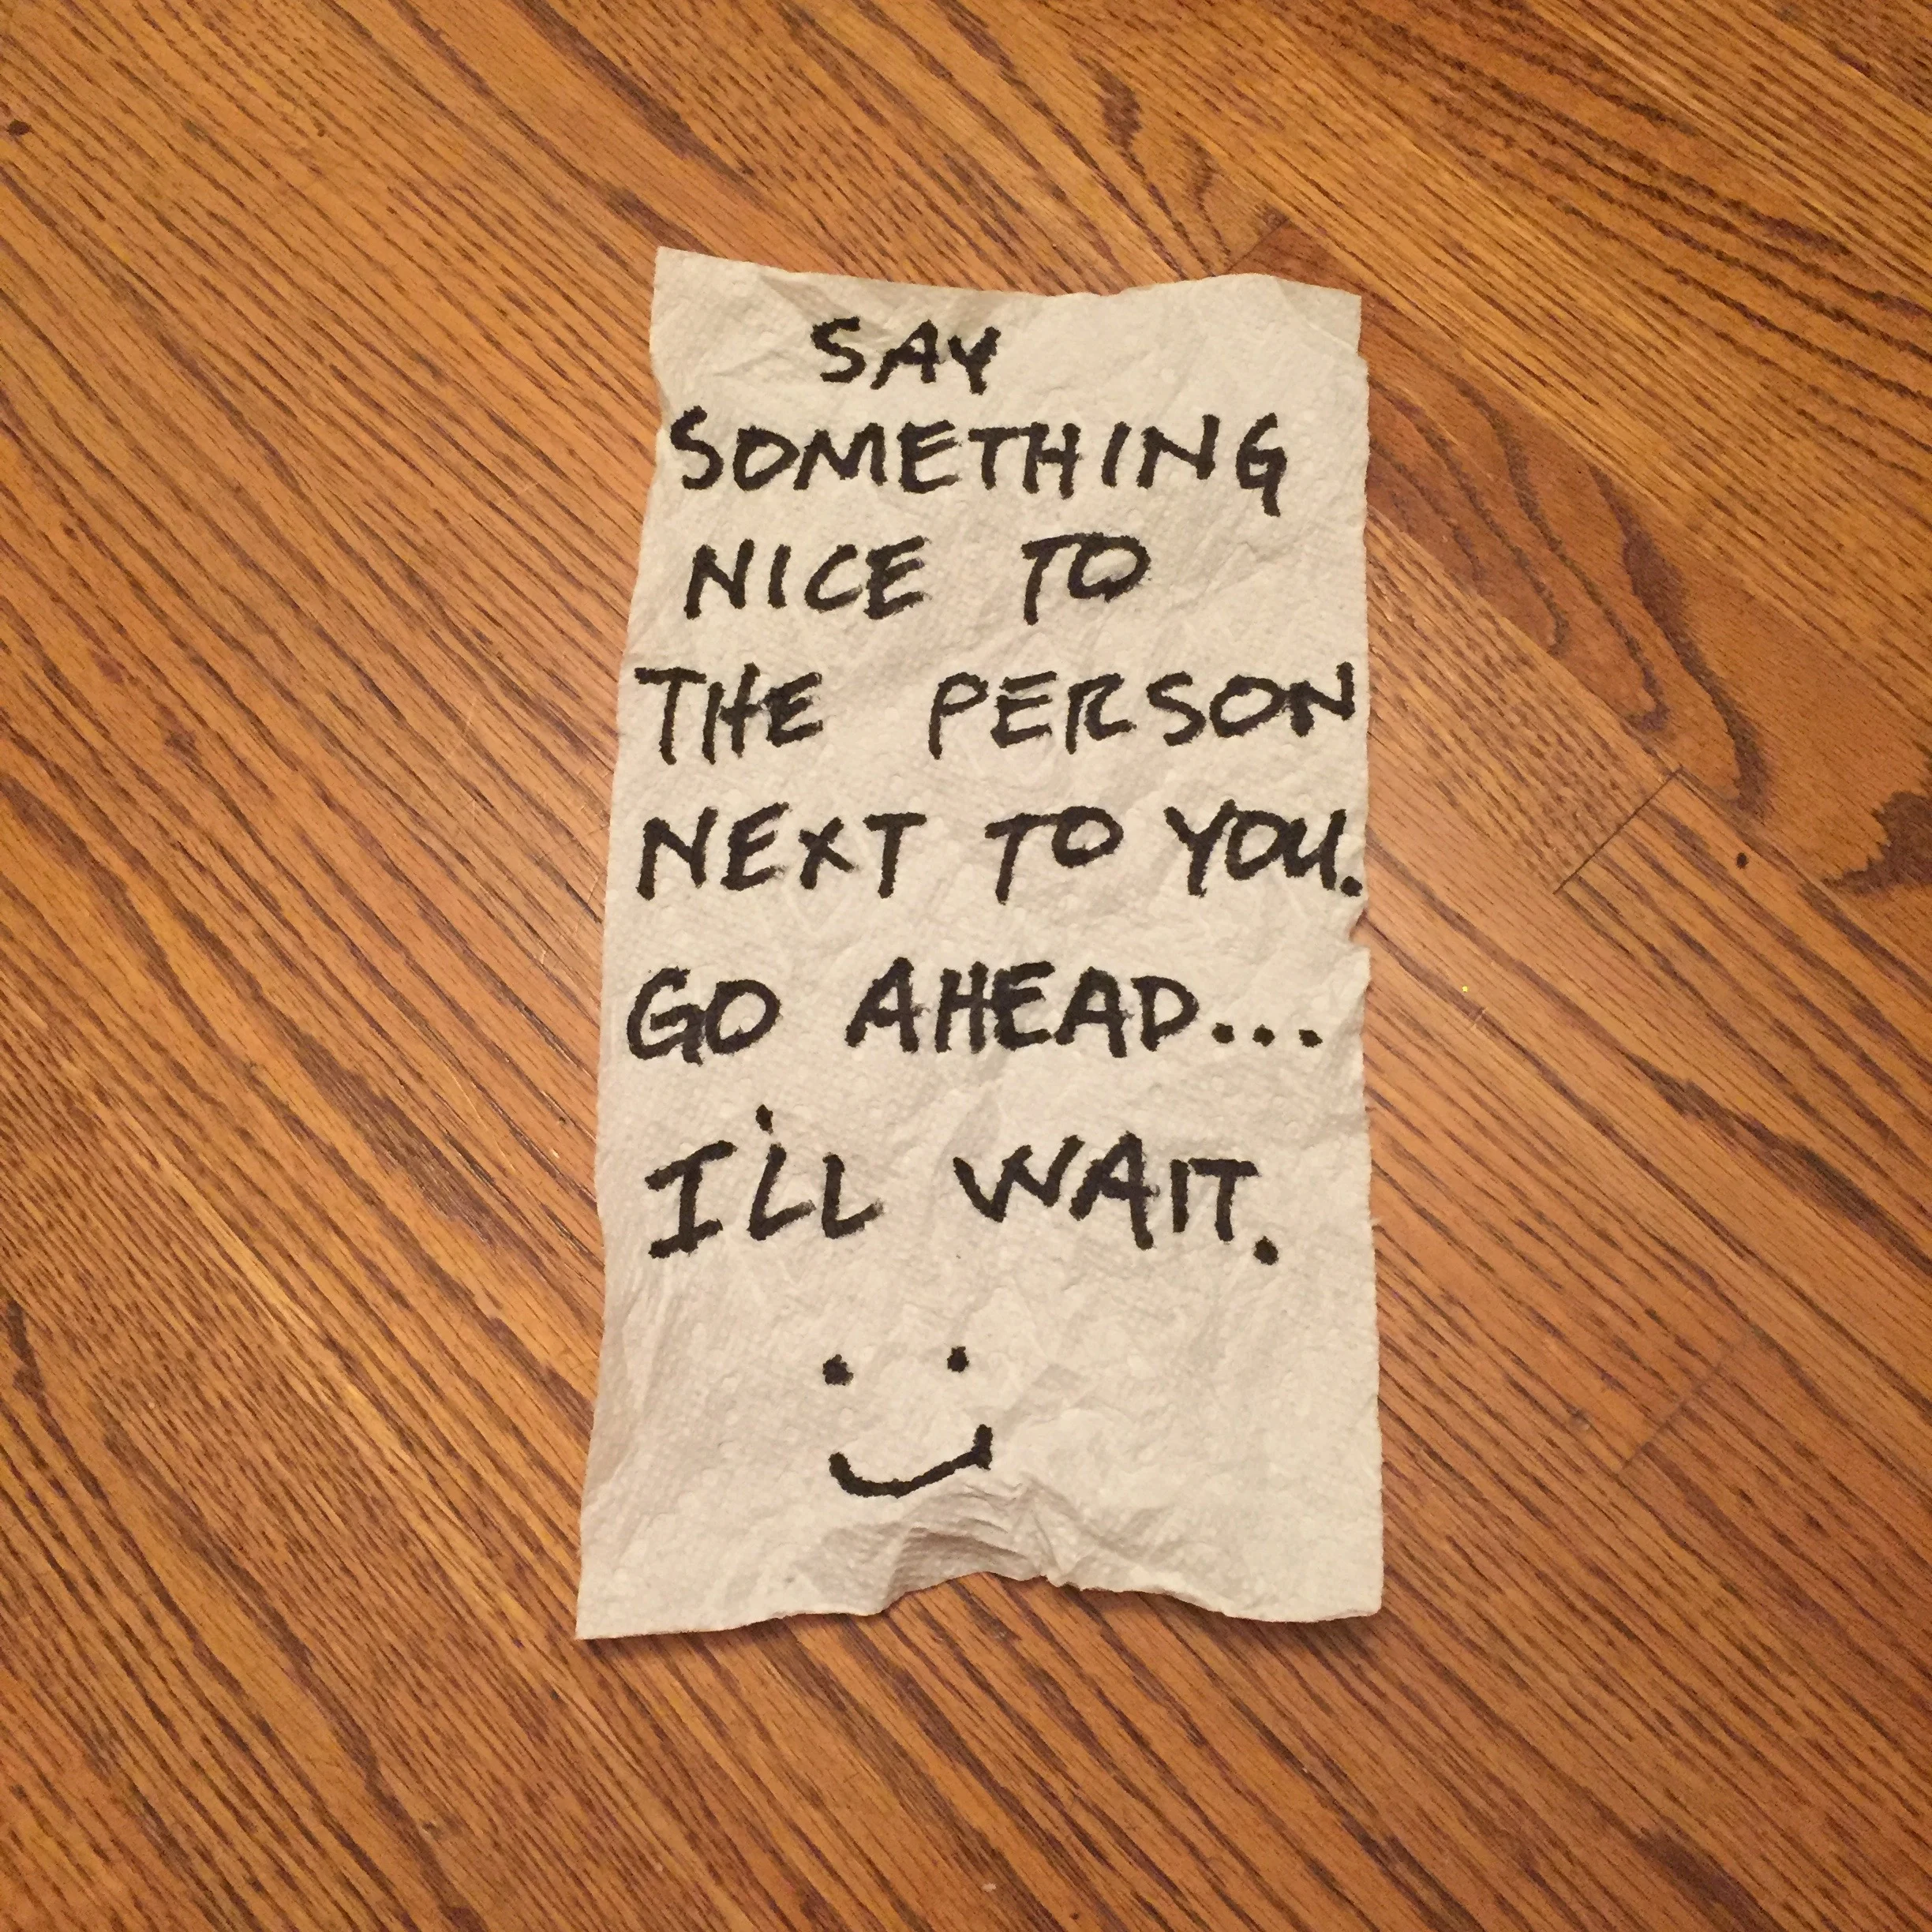 SAY
SOMETHING
NICE TO
THE PERSON
NEXT TO YOU.
GO AHEAD...
I'LL WAIT.